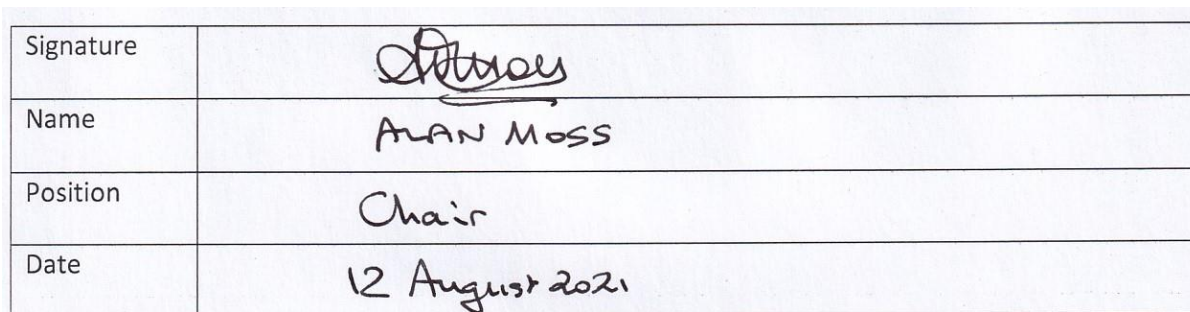 Signature
Name ALAN MOSS
Position Chair
Date 12 August 2021